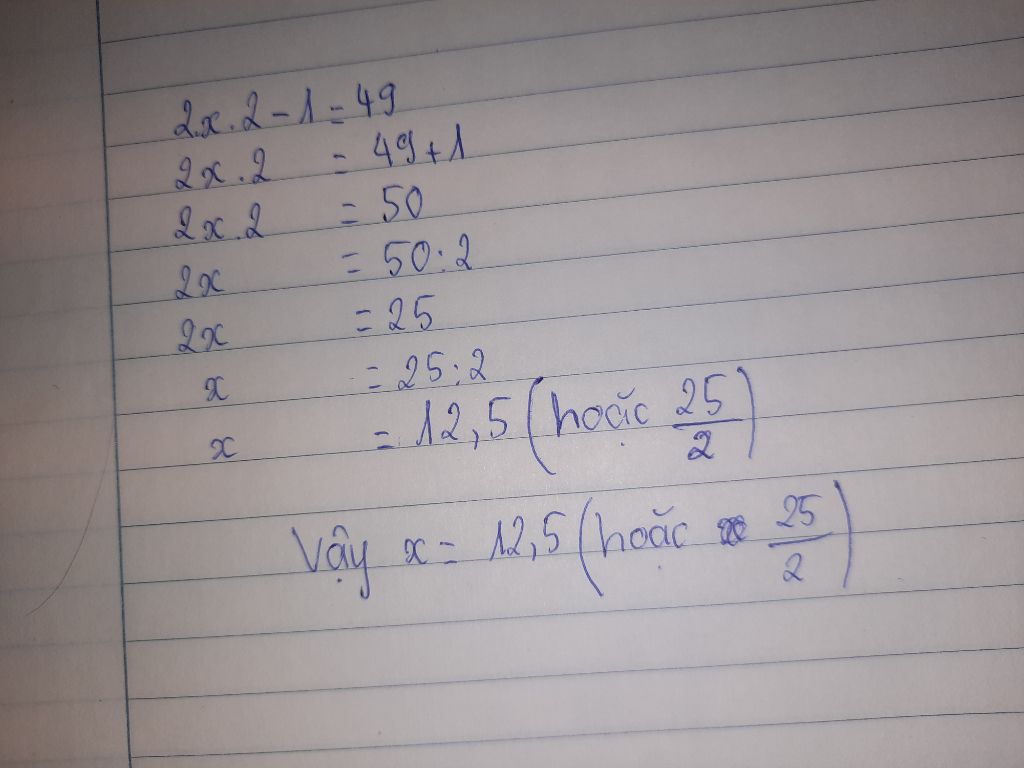 2.x.2-1=49
2x.2 = 49+1
2x.2 = 50
2x = 50:2
2x = 25
x = 25:2
x = 12,5 (hoặc 25/2)
Vậy x = 12,5 (hoặc 25/2)